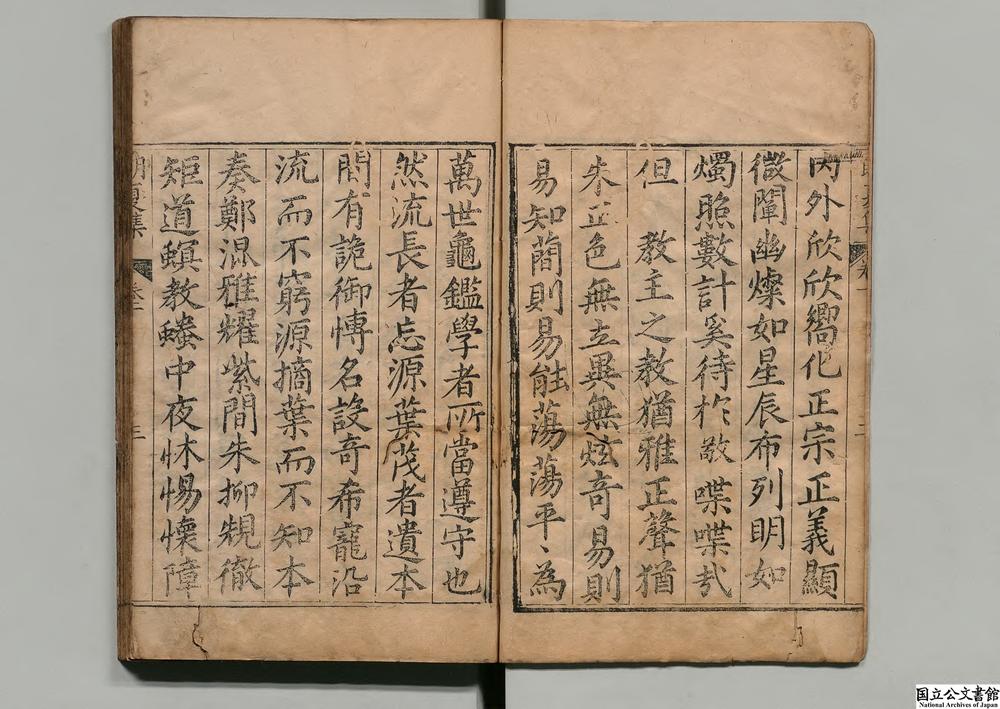 内外欣欣嚮化正宗正義顯
微闡幽燦如星辰布列明如
燭照數計奚待柞敔喋喋哉
但　教主之教猶雅正聲猶
朱正色無立異無炫奇易則
易知蕳則易能蕩蕩平〻為
萬世龜鑑學者所當遵守也
然流長者忘源葉茂者遺本
間有詭御愽名設奇希寵沿
流而不窮源摘葉而不知本
奏鄭混雅耀紫間朱抑䂓徹
矩道螟教蟊中夜怵惕懐障
集 卷一 三
国立公文書館
National Archives of Japan